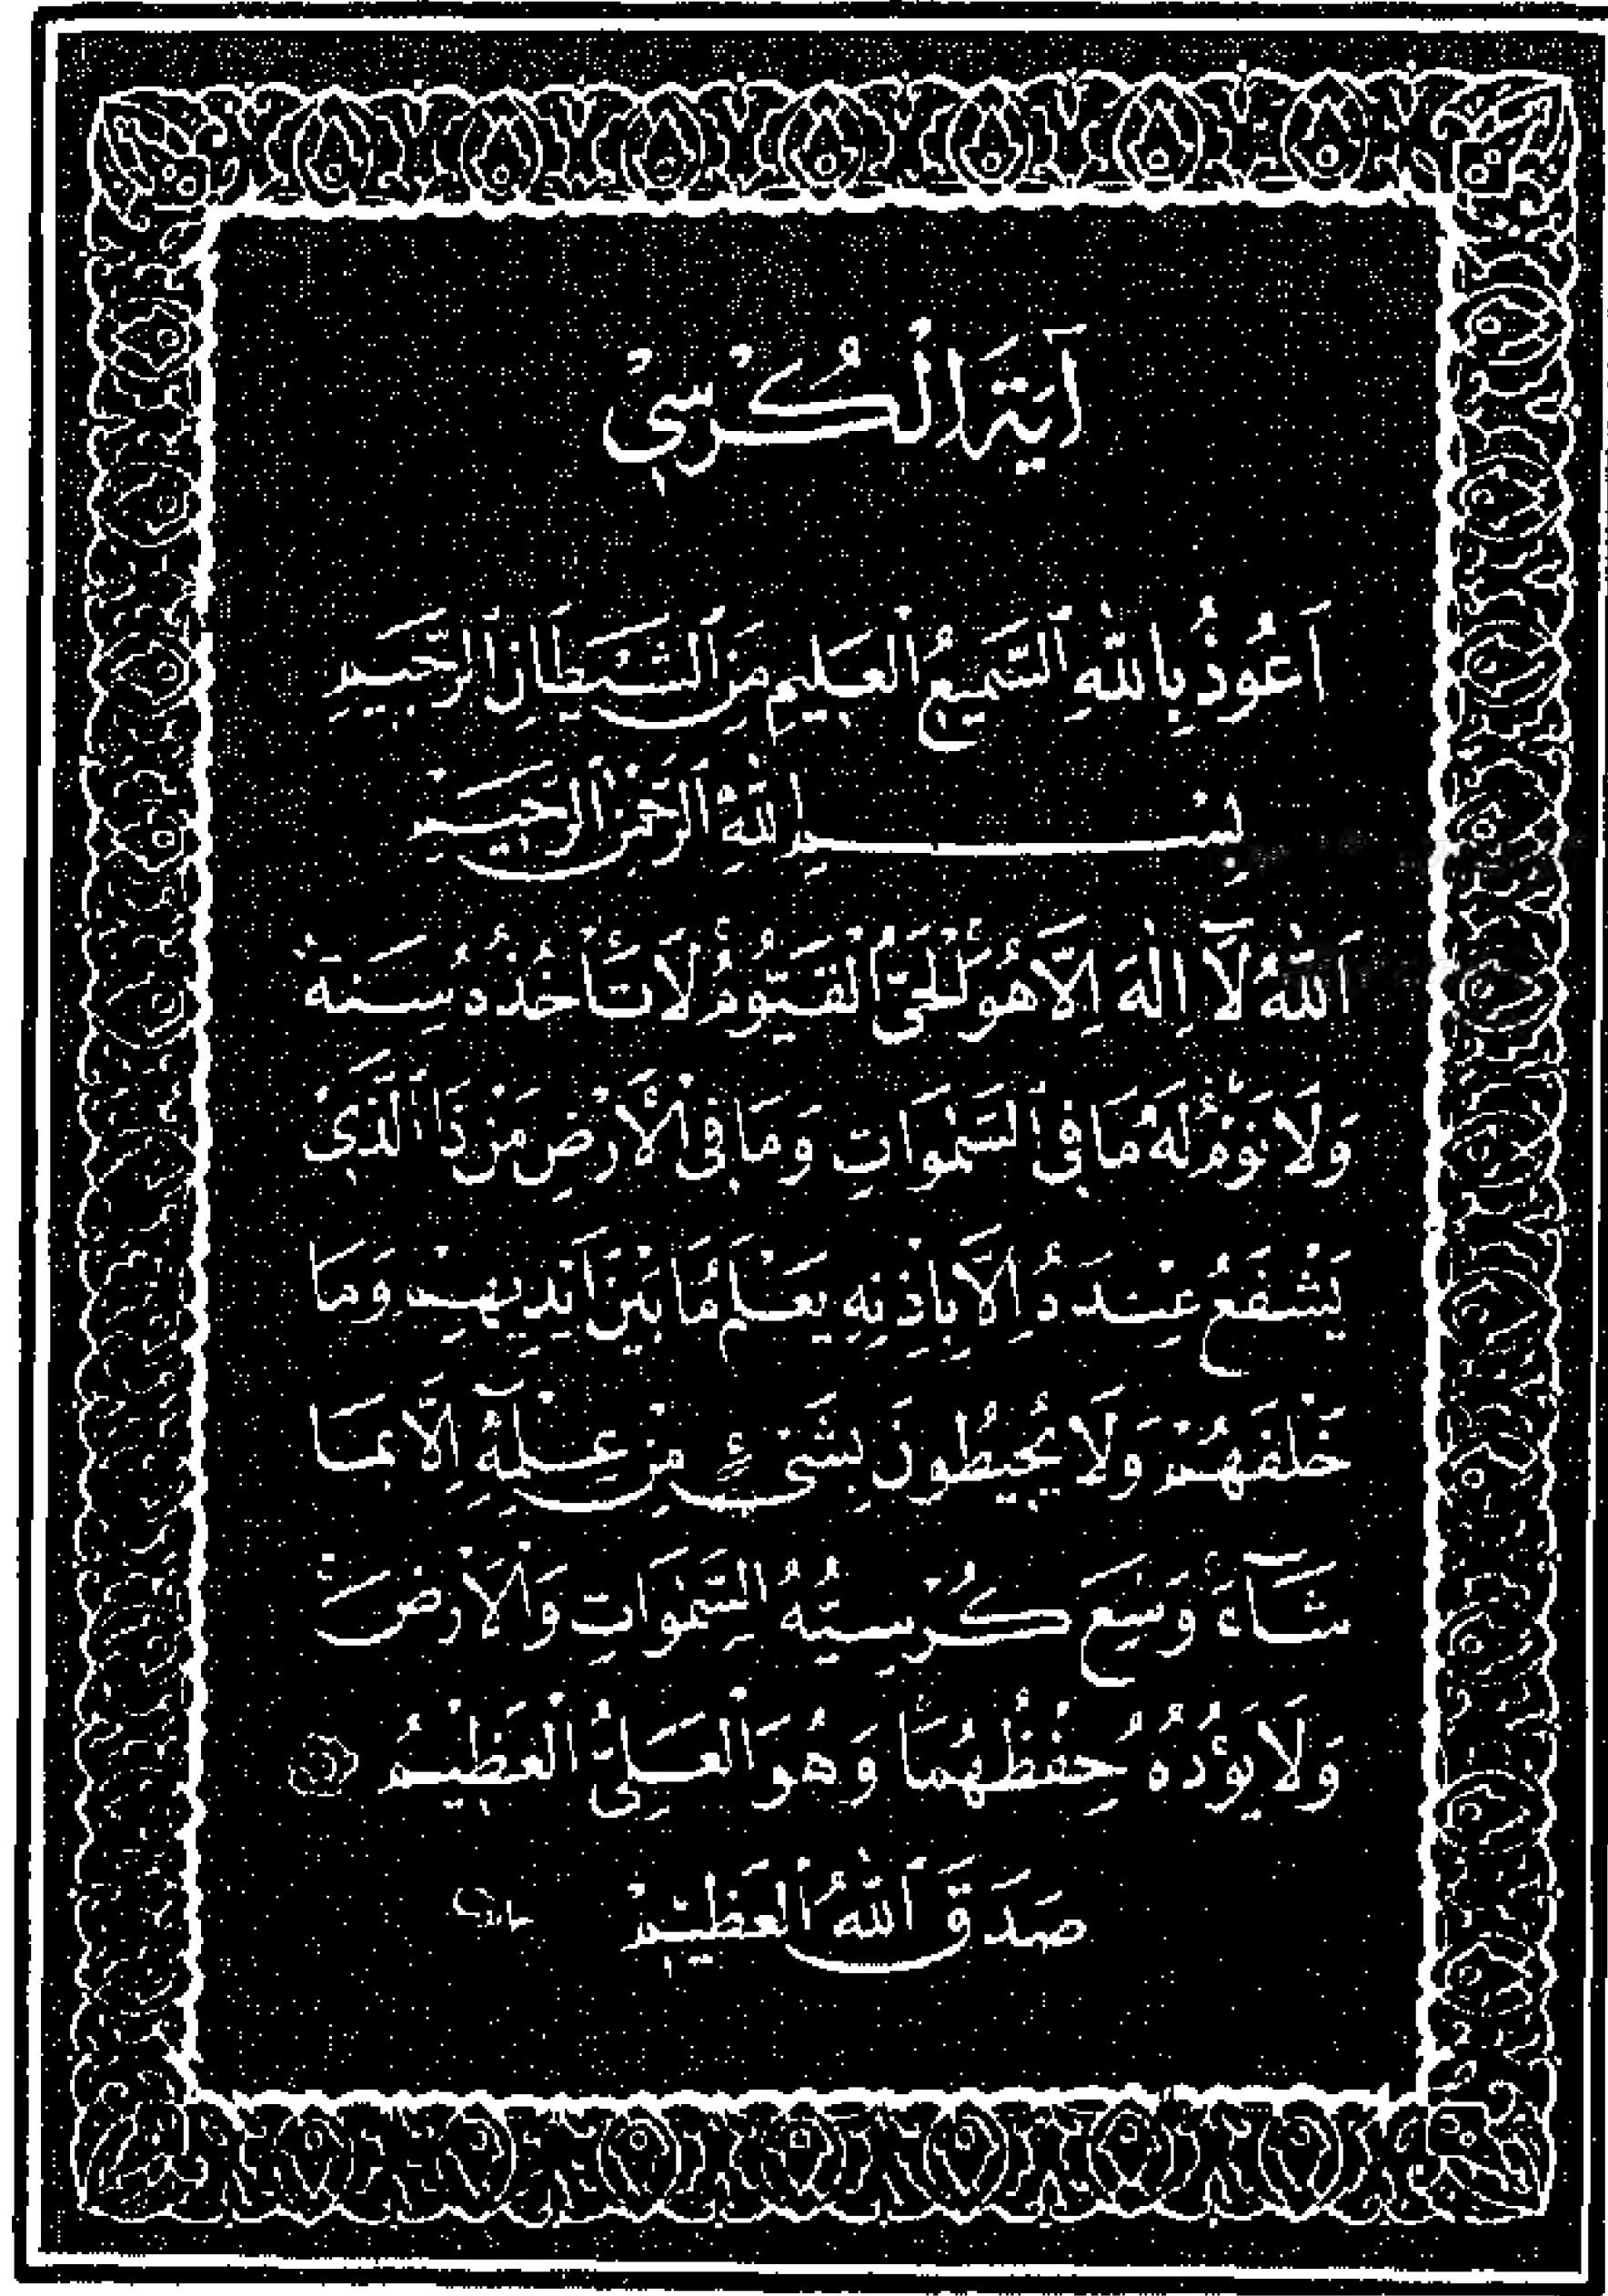 اٰيَةُ الْكُرْسِيْ
اَعُوذُ بِاللّٰهِ السَّمِيعِ الْعَلِيمِ مِنَ الشَّيْطَانِ الرَّجِيمِ
بِسْمِ اللّٰهِ الرَّحْمٰنِ الرَّحِيمِ
اَللّٰهُ لَآ اِلٰهَ اِلَّا هُوَ الْحَيُّ الْقَيُّومُ لَا تَأْخُذُهُ سِنَةٌ
وَلَا نَوْمٌ لَهُ مَا فِي السَّمٰوَاتِ وَمَا فِي الْاَرْضِ مَنْ ذَا الَّذِي
يَشْفَعُ عِنْدَهُ اِلَّا بِاِذْنِهِ يَعْلَمُ مَا بَيْنَ اَيْدِيهِمْ وَمَا
خَلْفَهُمْ وَلَا يُحِيطُونَ بِشَيْءٍ مِنْ عِلْمِهِ اِلَّا بِمَا
شَآءَ وَسِعَ كُرْسِيُّهُ السَّمٰوَاتِ وَالْاَرْضَ
وَلَا يَؤُدُهُ حِفْظُهُمَا وَهُوَ الْعَلِيُّ الْعَظِيمُ
صَدَقَ اللّٰهُ الْعَظِيمْ